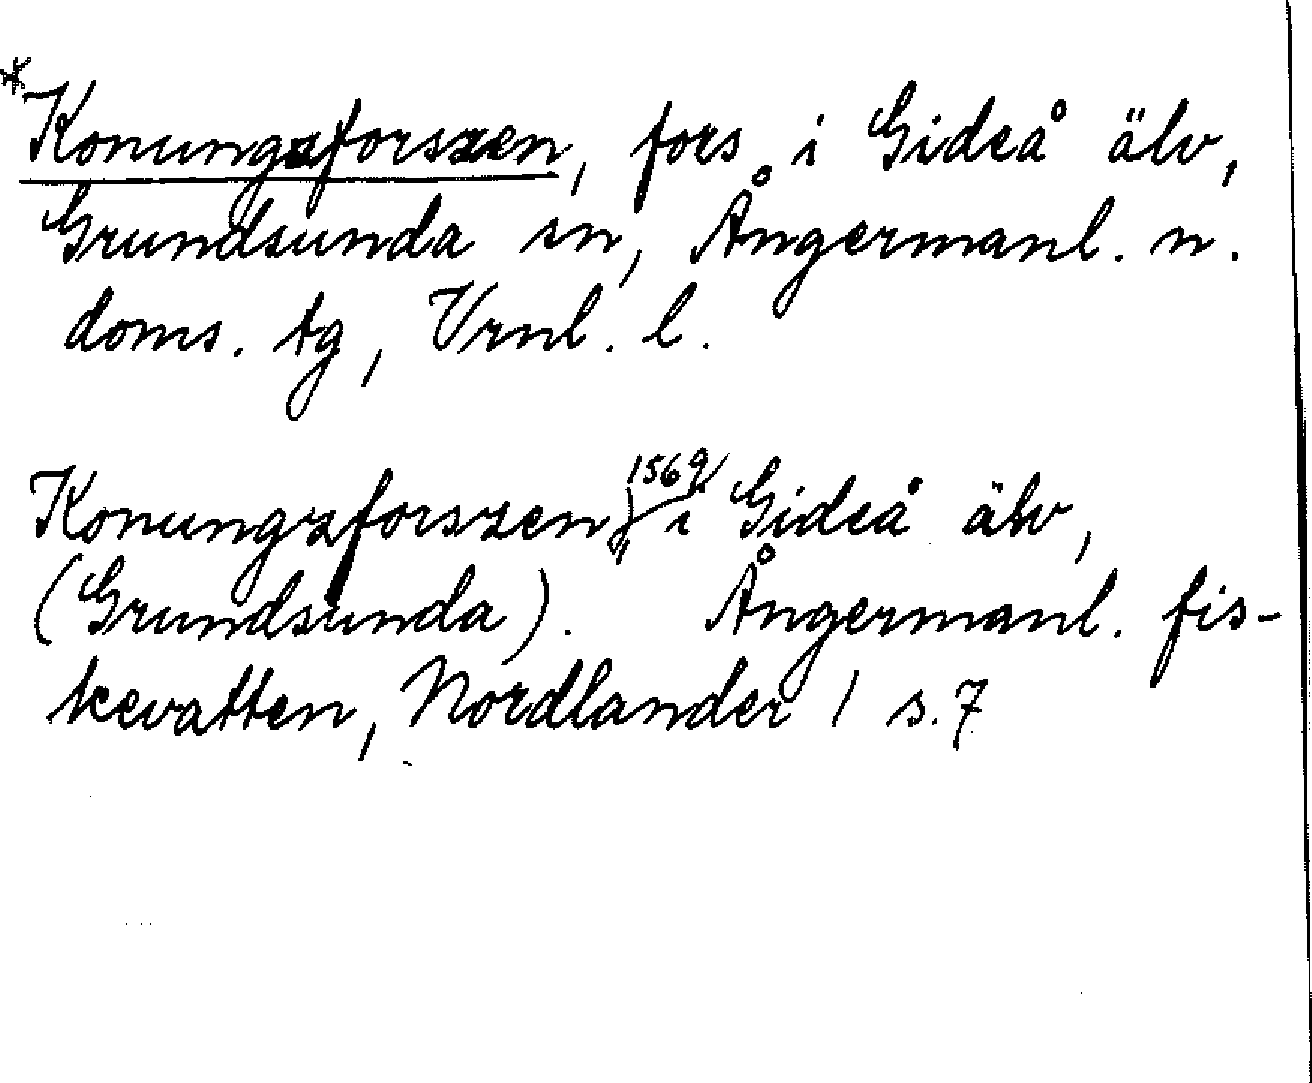 *Konungzforszen, fors i Gideå älv,
Grundsunda sn, Ångermanl. n.
doms. tg, Vrnl. l.
Konungzforszen, 1569 i Gideå älv,
(Grundsunda). Ångermanl. fis-
kevatten, Nordlander 1 s. 7